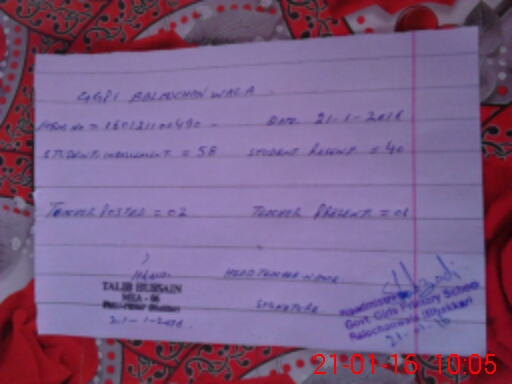 GGPS BALOUCHAN WALA
DATE 21-1-2016
STUDENT ENROLLMENT = 58 STUDENT PRESENT = 40
TEACHER POSTED = 02 TEACHER PRESENT = 01
HEAD TEACHER NAME
TALIB HUSSAIN
MEA - 06
SIGNATURE
Headmistress
Govt Girls Primary School
Balochanwala (Bhakkar)
21-1-2016
21.01.16
21-01-16 10:05